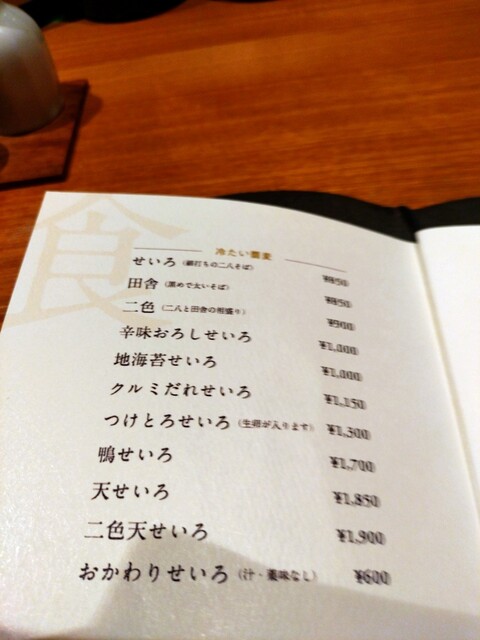 食
冷たい蕎麦
せいろ（細打ちの二八そば） ¥850
田舎（黒めで太いそば） ¥850
二色（二八と田舎の相盛り） ¥900
辛味おろしせいろ ¥1,000
地海苔せいろ ¥1,000
クルミだれせいろ ¥1,150
つけとろせいろ（生卵が入ります） ¥1,300
鴨せいろ ¥1,700
天せいろ ¥1,850
二色天せいろ ¥1,900
おかわりせいろ（汁・薬味なし） ¥600